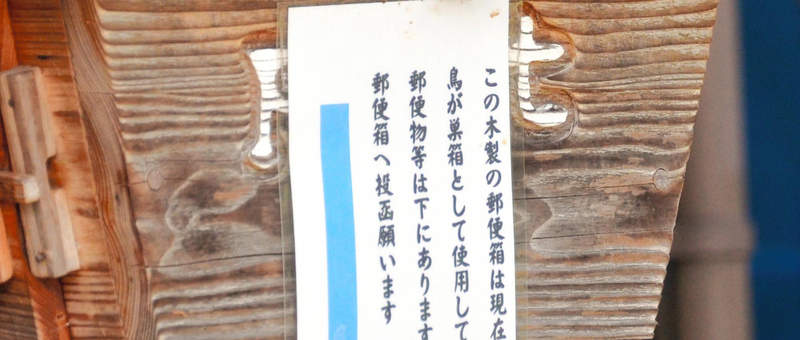 この木製の郵便箱は現在
鳥が巣箱として使用して
郵便物等は下にあります
郵便箱へ投函願います